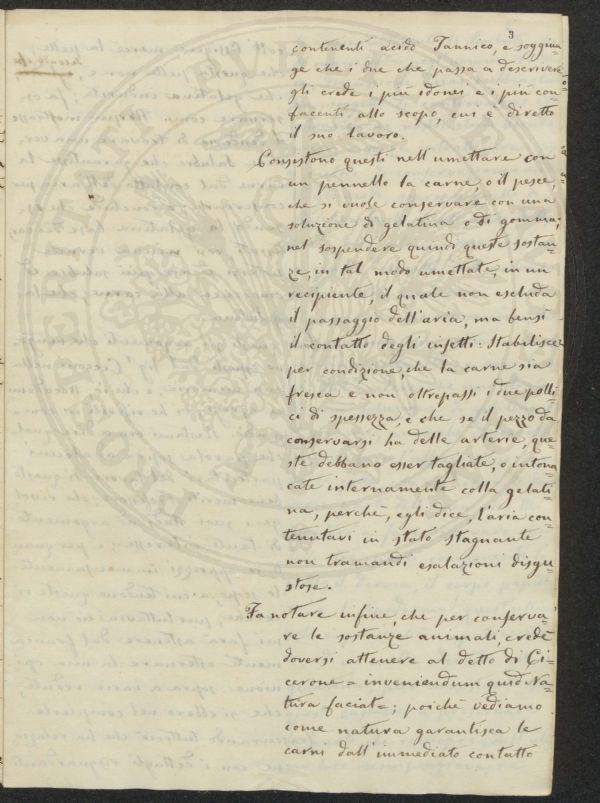 3
contenenti acido Tannico, e soggiun=
ge che i due che passa a descrivere
egli crede i più idonei e i più con=
facenti allo scopo, cui è diretto
il suo lavoro.
Consistono questi nell'umettare con
un pennello la carne o il pesce,
che si vuole conservare con una
soluzione di gelatina o di gomma;
nel sospendere quindi queste sostan=
ze, in tal modo umettate, in un
recipiente, il quale non escluda
il passaggio dell'aria, ma bensì
il contatto degli insetti: Stabilisce
per condizione, che la carne sia
fresca e non oltrepassi i due polli=
ci di spessezza, e che se il pezzo da
conservarsi ha delle arterie, que=
ste debbano esser tagliate, o intona
cate internamente colla gelati=
na, perchè, egli dice, l'aria con=
tenutavi in stato stagnante
non tramandi esalazioni disgu=
stose.
Fa notare infine, che per conserva=
re le sostanze animali, crede
doversi attenere al detto di Ci=
cerone = inveniendum quid Na=
tura faciat =; poichè vediamo
come natura garantisca le
carni dall'immediato contatto